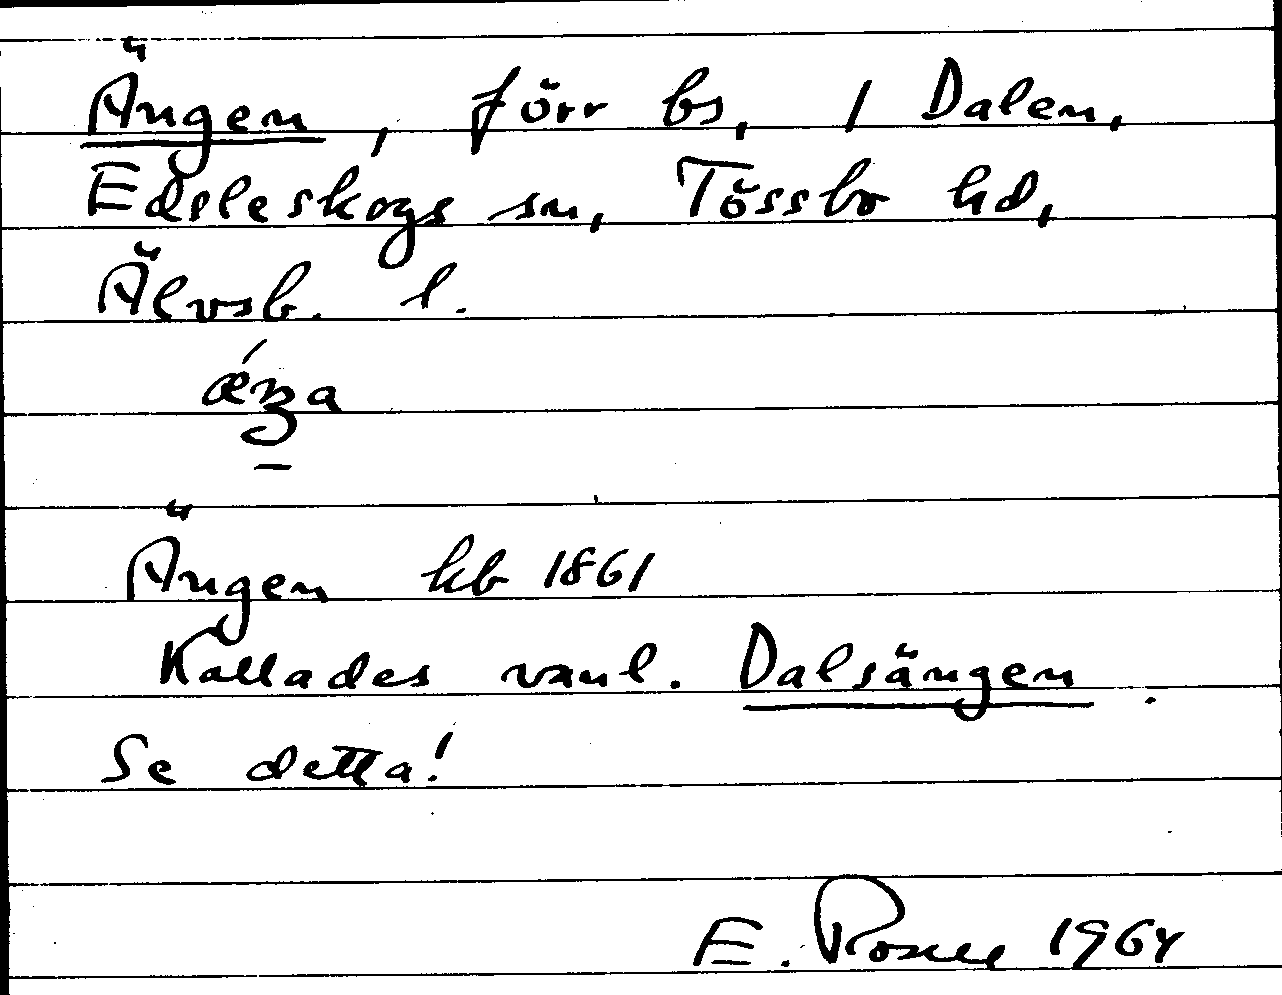 Ängen, förr bs, 1 Dalen,
Edsleskogs sn, Tössbo hd,
Älvsb. l.
Ängen hb 1861
Kallades vanl. Dalsängen.
Se detta!
E. 1964